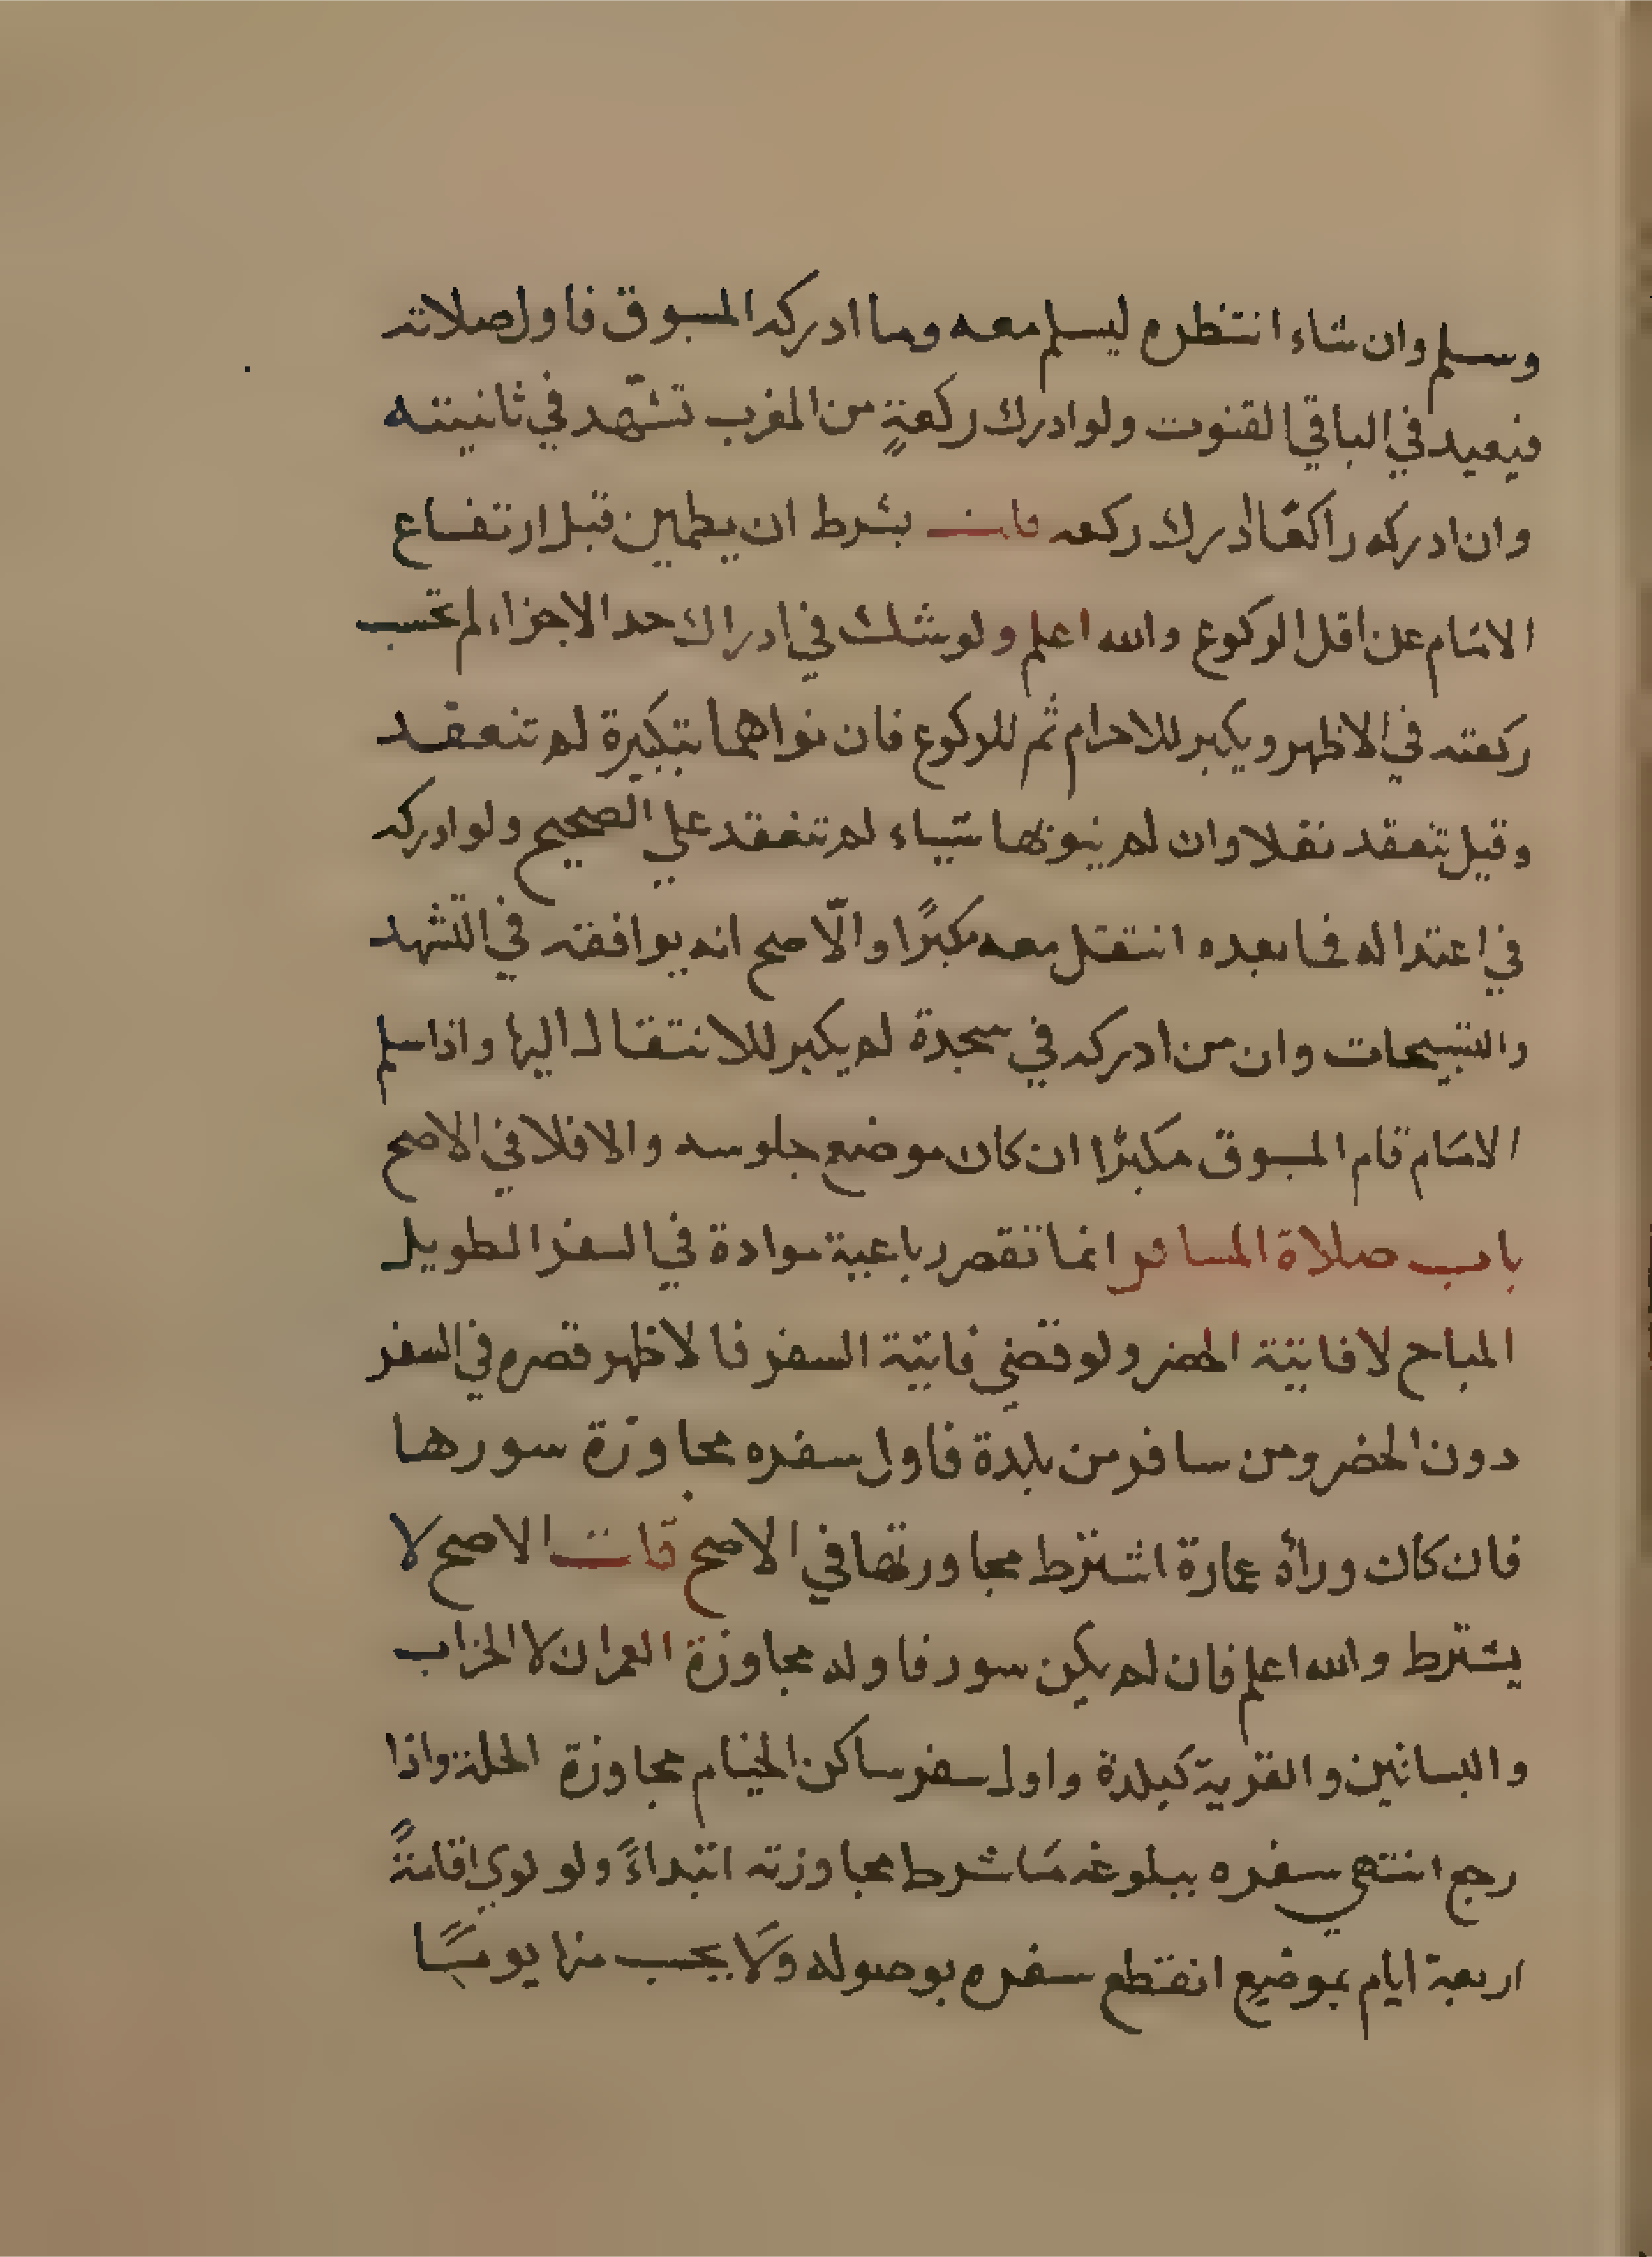 وسلم وان شاء انتظره ليسلم معه وما ادركه المسبوق فاول صلاته
فيعيد في الباقي القنوت ولو ادرك ركعةٍ من المغرب تشهّد في ثانيته
وان ادركه راكعًا ادرك ركعه قلت بشرط ان يطمين قبل ارتفاع
الامام عن اقل الركوع والله اعلم ولو شك في ادراك حد الاجزاء لم تحسب
ركعته في الاظهر ويكبر للاحرام ثم للركوع فان نواهما بتكبيرة لم تنعقد
وقيل تنعقد نفلا وان لم ينو بها شياء لم تنعقد علي الصحيح ولو ادركه
في اعتداله فما بعده انتقل معه مكبرًا والاّصح انه يوافقه في التّشهد
والتسبيحات وان من ادركه في سجدة لم يكبر للانتقال اليها واذا سلم
الامام قام المسبوق مكبرًا ان كان موضع جلوسه والا فلا في الاصح
باب صلاة المسافر انما تقصر رباعية موادة في السفر الطويل
المباح لا فايتة الحضر ولو قضي فايتة السفر فالاظهر قصره في السفر
دون الحضر ومن سافر من بلدة فاول سفره مجاوزة سورها
فان كان وراه عمارة اشترط مجاورتها في الاصح قلت الاصح لا
يشترط والله اعلم فان لم يكن سور فاوله مجاوزة العمران لا الخراب
والبساتين والقرية كبلدة واول سفر ساكن الخيام مجاوزة الحلة واذا
رجع انتهي سفره ببلوغه ما شرط مجاوزته ابتداءً ولو نوي اقامةً
اربعة ايام بموضع انقطع سفره بوصوله ولا يحسب منها يومًا